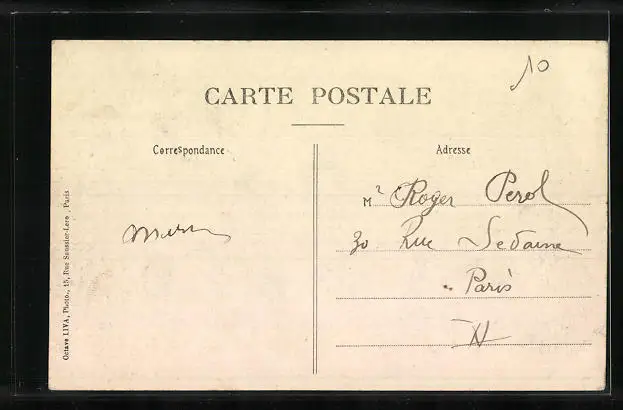 10
CARTE POSTALE
Correspondance
Adresse
Mr Roger Perol
30 Rue Sedaine
Paris
Octave LIVA, Photo., 15, Rue Saussier-Lero, Paris